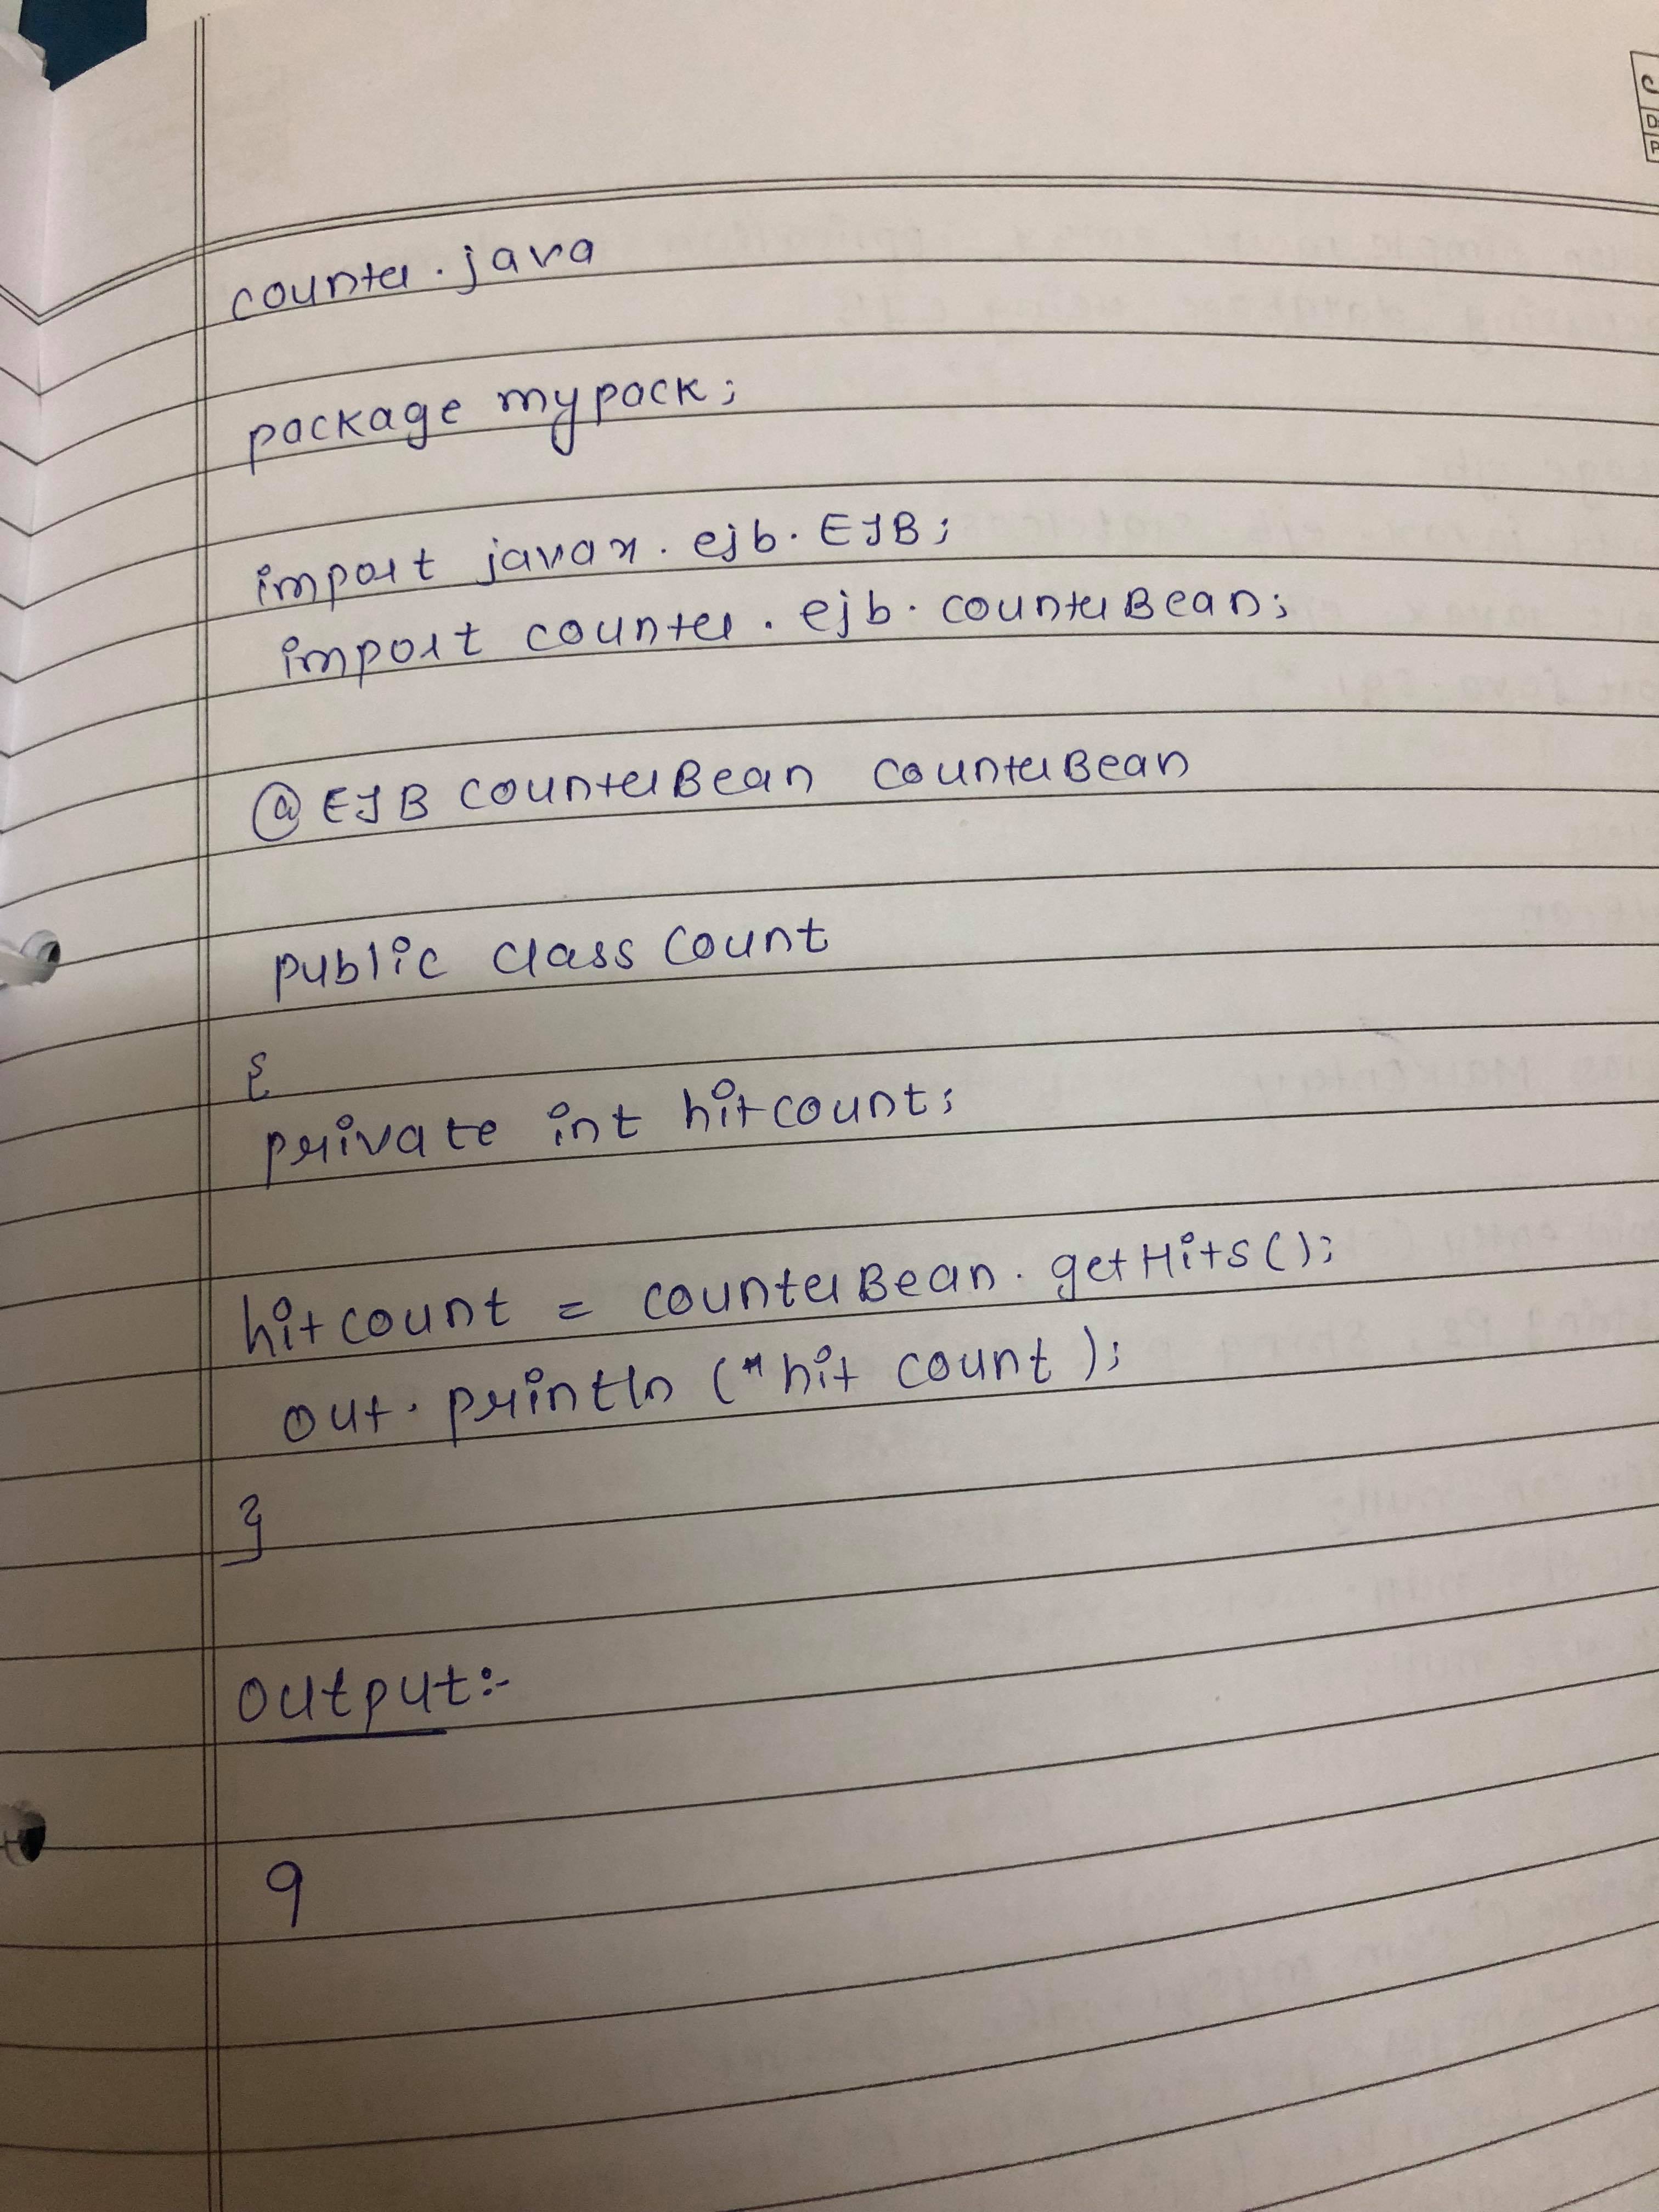 counter.java
package mypack;
import javax.ejb.EJB;
import counter.ejb.counterBean;
@EJB counterBean counterBean
public class Count
{
private int hitcount;
hitcount = counterBean.getHits();
out.println ("hit count );
}
output:-
9